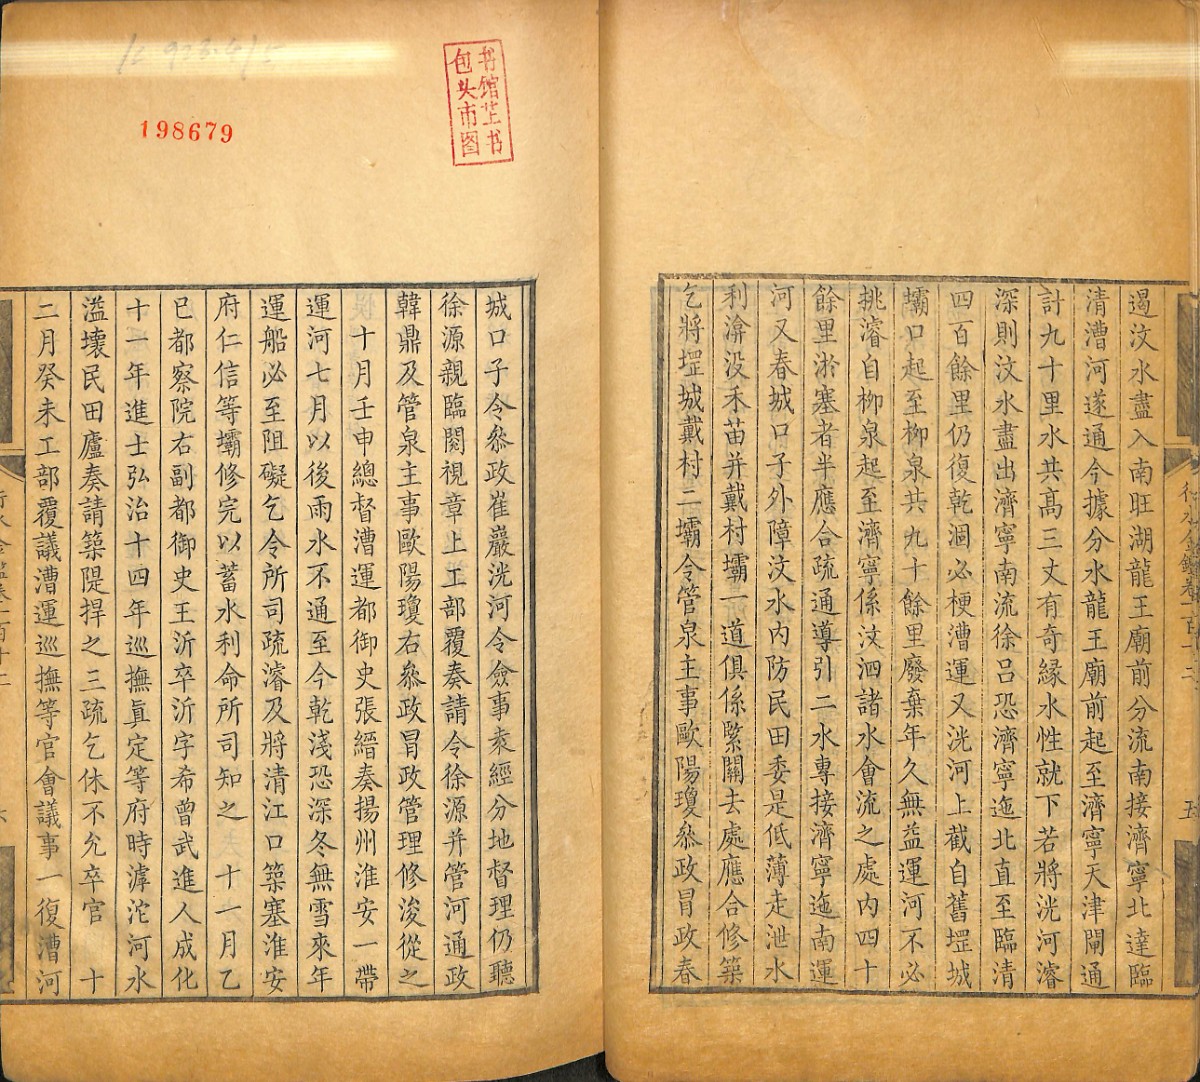 遏汶水盡入南旺湖龍王廟前分流南接濟寧北達臨
清漕河遂通今據分水龍王廟前起至濟寧天津閘通
計九十里水共高三丈有奇緣水性就下若將洸河濬
深則汶水盡出濟寧南流徐呂恐濟寧迤北直至臨清
四百餘里仍復乾涸必梗漕運又洸河上截自舊堽城
壩口起至柳泉共九十餘里廢棄年久無益運河不必
挑濬自柳泉起至濟寧係汶泗諸水會流之處內四十
餘里淤塞者半應合疏通導引二水專接濟寧迤南運
河又春城口子外障汶水內防民田委是低薄走泄水
利渰没禾苗并戴村壩一道俱係緊關去處應合修築
乞將堽城戴村二壩令管泉主事歐陽瓊叅政冒政春
五
城口子令叅政崔巖洸河令僉事袁經分地督理仍聽
徐源親臨閱視章上工部覆奏請令徐源并管河通政
韓鼎及管泉主事歐陽瓊右叅政冒政管理修浚從之
十月壬申總督漕運都御史張縉奏揚州淮安一帶
運河七月以後雨水不通至今乾淺恐深冬無雪來年
運船必至阻礙乞令所司疏濬及將清江口築塞淮安
府仁信等壩修完以蓄水利命所司知之 十一月乙
巳都察院右副都御史王沂卒沂字希曾武進人成化
十一年進士弘治十四年巡撫眞定等府時滹沱河水
溢壞民田廬奏請築隄捍之三疏乞休不允卒官 十
二月癸未工部覆議漕運巡撫等官會議事一復漕河
198679
书馆芷书
包头市图